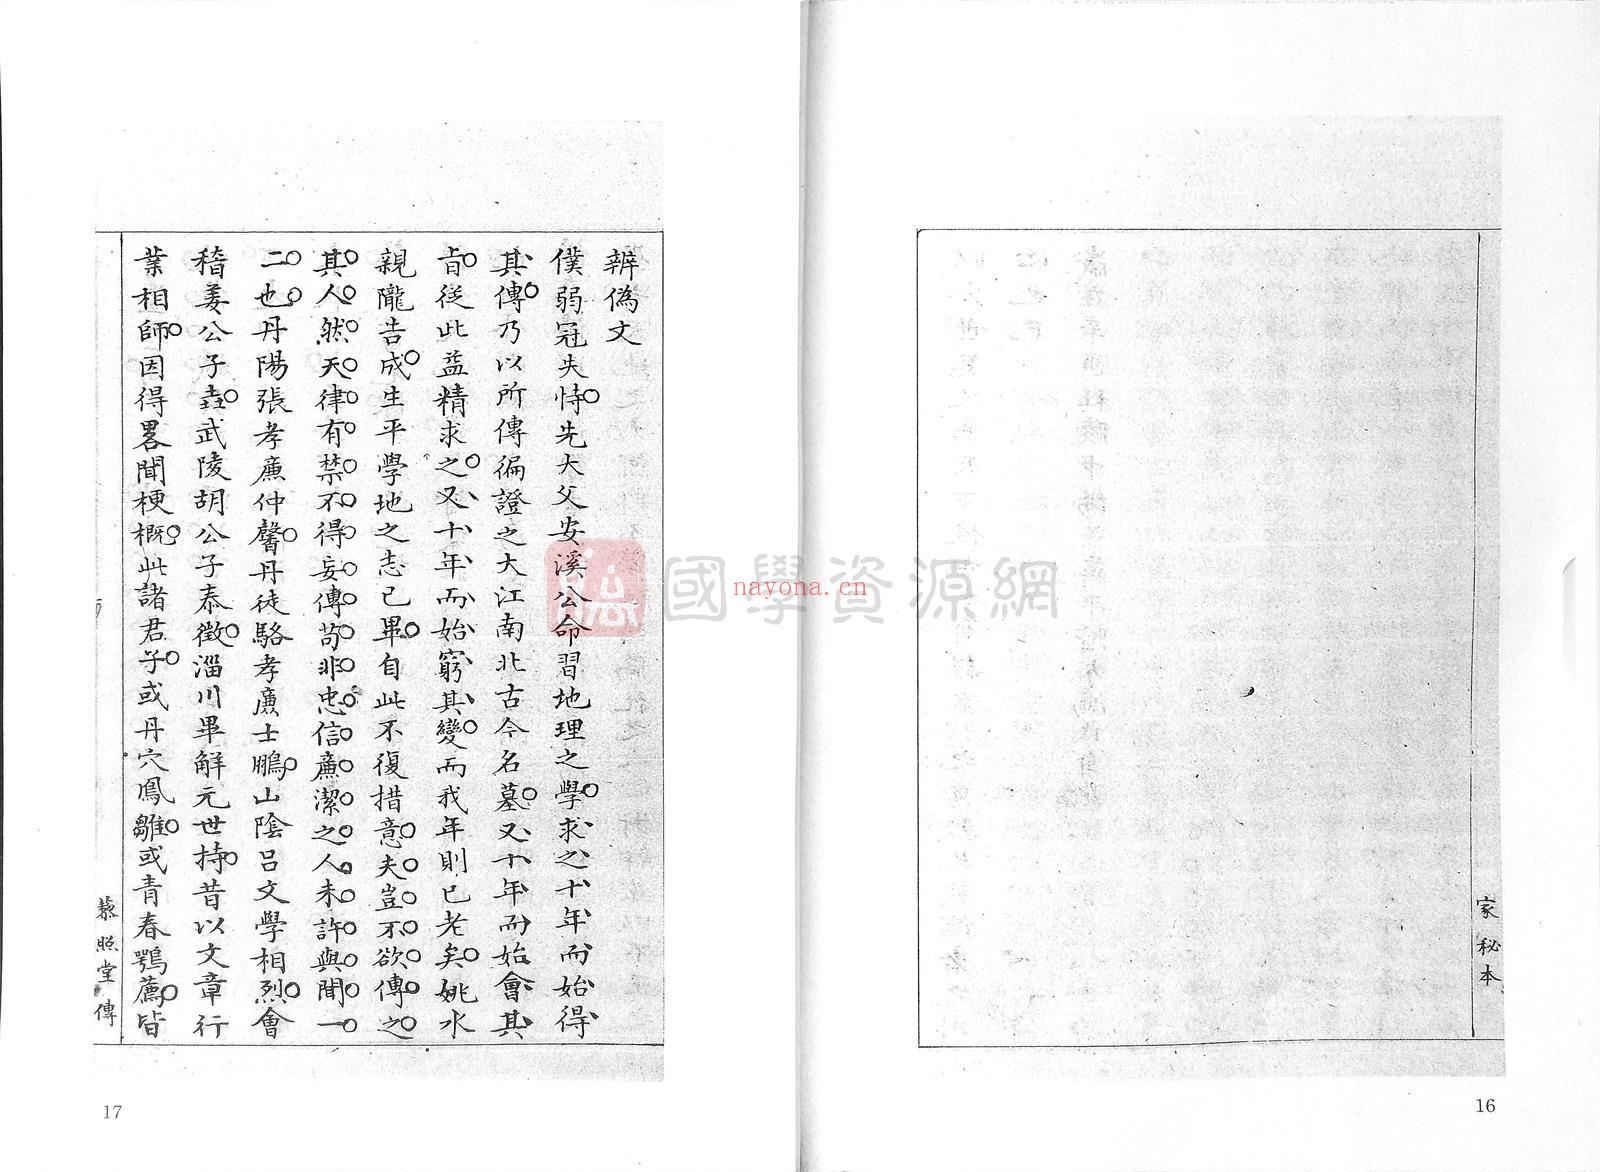 家秘本
16
辨偽文
僕弱冠失恃先大父安溪公命習地理之學求之十年而始得
其傳乃以所傳徧證之大江南北古今名墓又十年而始會其
旨從此益精求之又十年而始窮其變而我年則已老矣姚水
親隴告成生平學地之志已畢自此不復措意夫豈不欲傳之
其人然天律有禁不得妄傳苟非忠信廉潔之人未許與聞一
二也丹陽張孝廉仲馨丹徒駱孝廉士鵬山陰呂文學相烈會
稽姜公子垚武陵胡公子泰徵淄川畢解元世持昔以文章行
業相師因得畧聞梗概此諸君子或丹穴鳳雛或青春鶚薦皆
照堂傳
17
國學資源網
nayona.cn